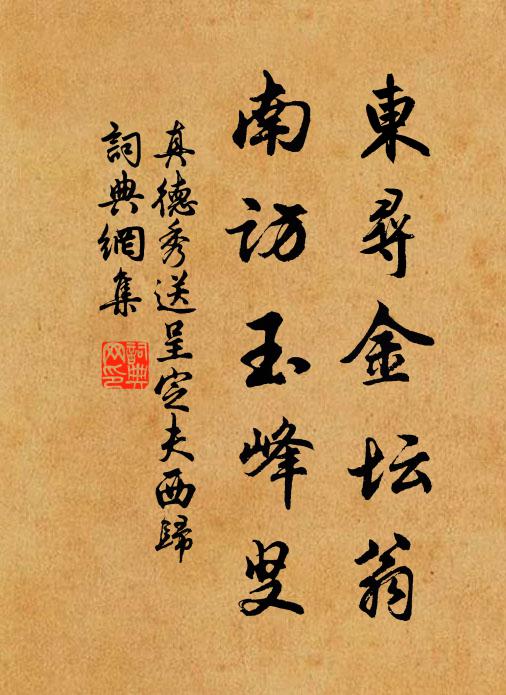 東尋金坛翁
南访玉峰叟
真德秀送呈定夫西歸
詞典網集
詞典网印